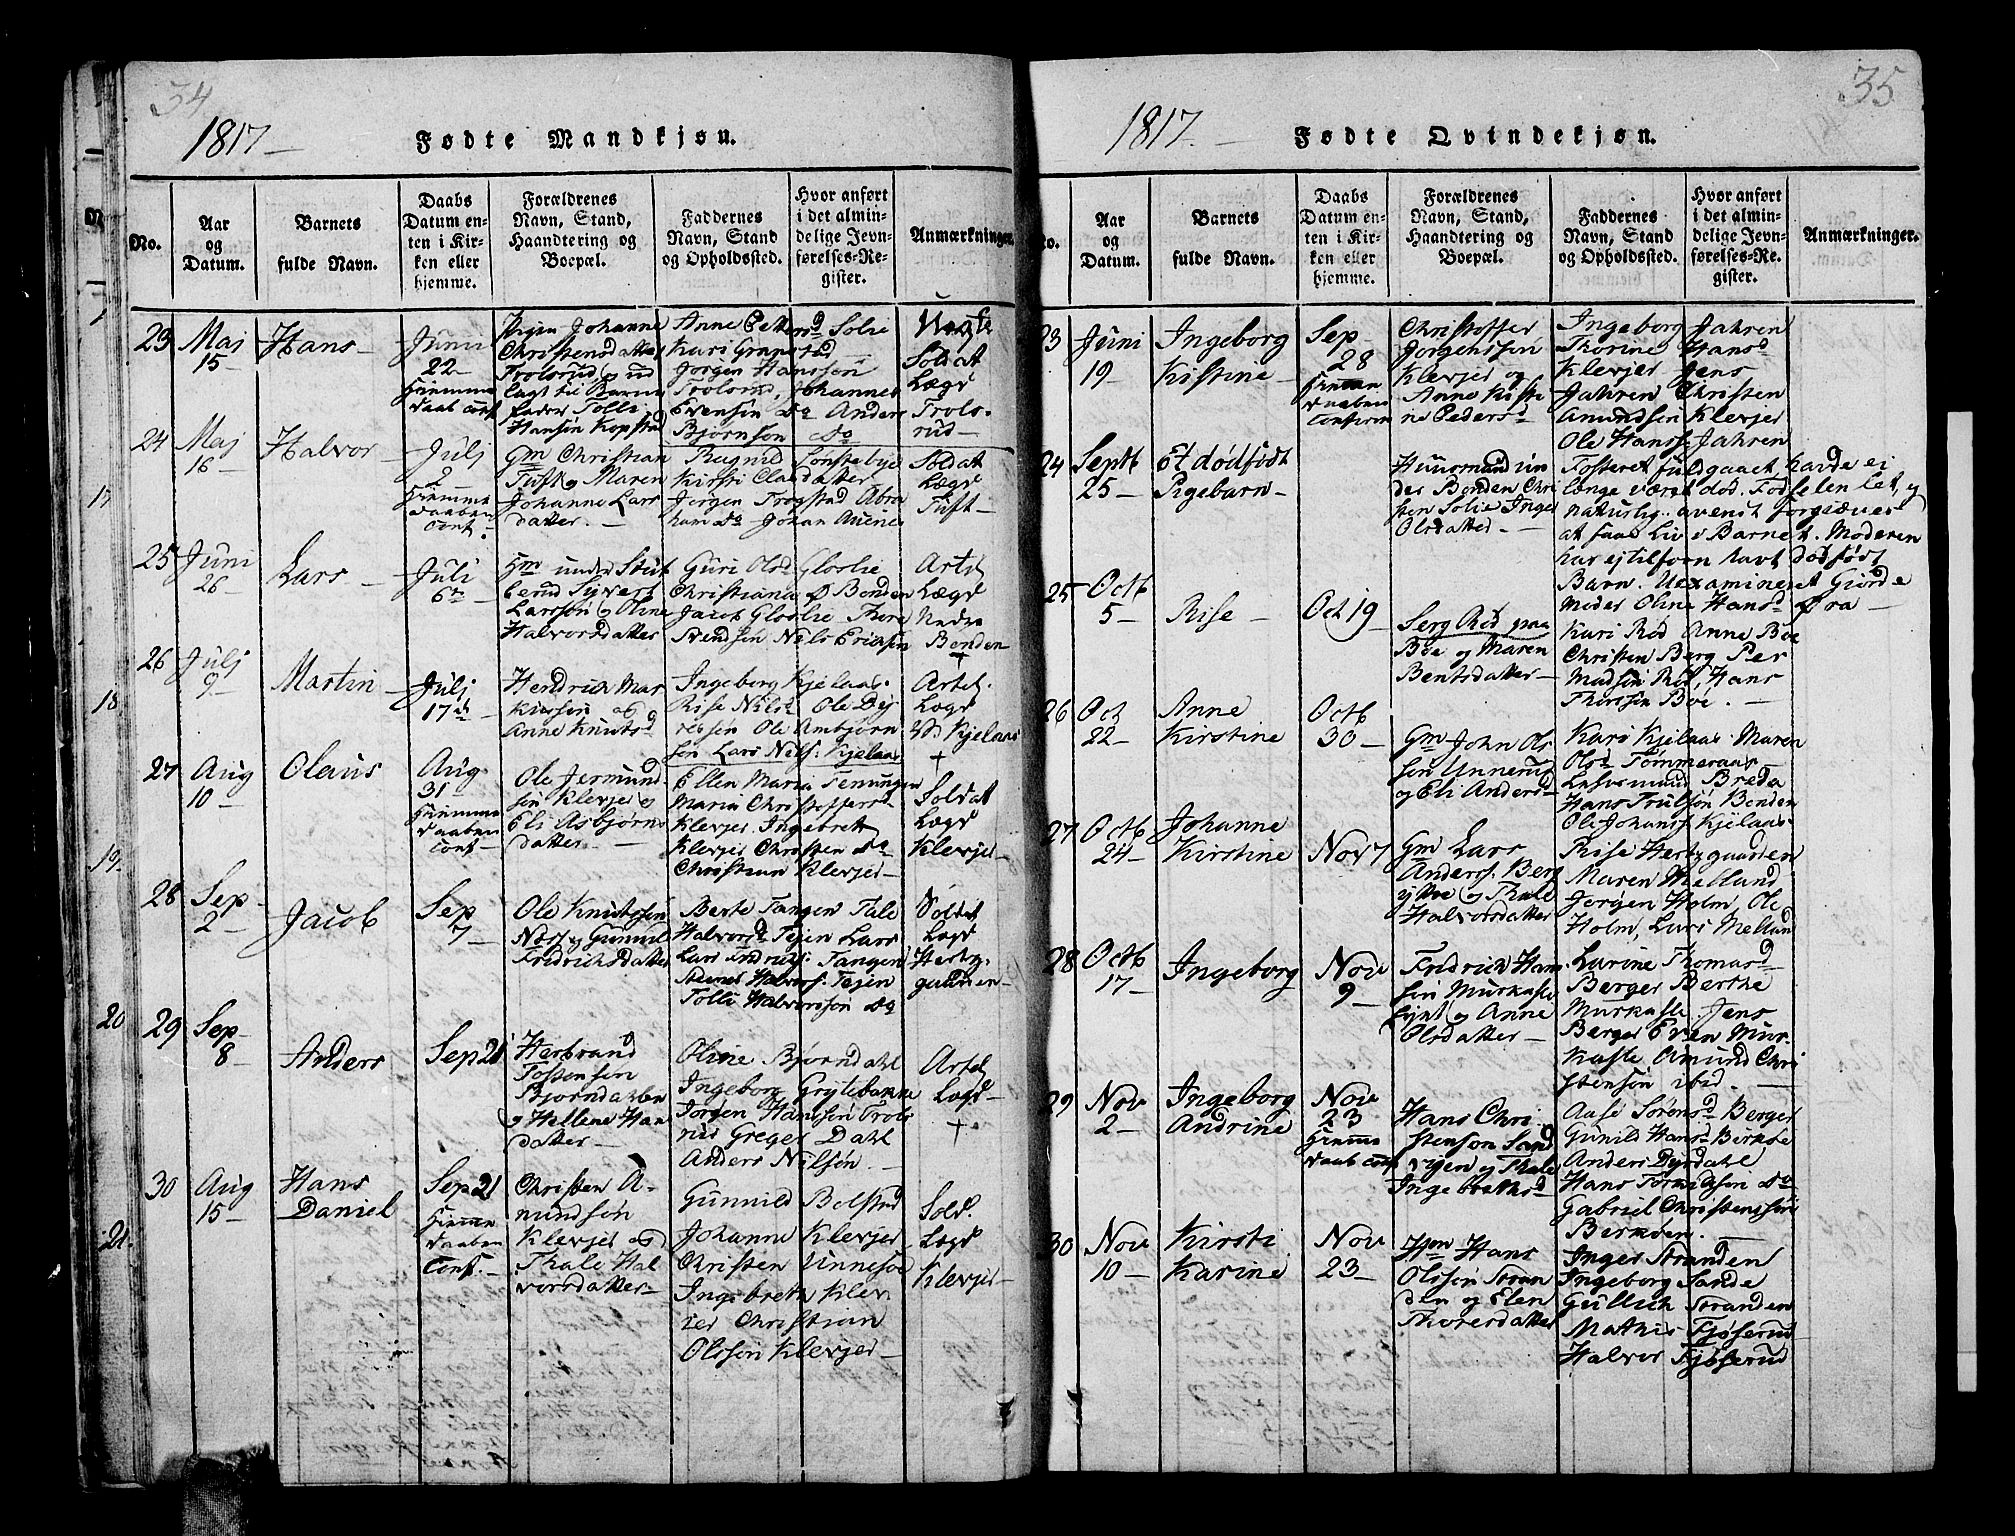 34
1817
Fødte Mandkjøn.
No.
Aar
og
Datum.
Barnets
fulde Navn.
Daabs
Datum en-
ten i Kir-
ken eller
hjemme.
Forældrenes
Navn, Stand,
Haandtering og
Boepæl.
Faddernes
Navn, Stand
og Opholdssted.
Hvor anført
i det almin-
delige Jevn-
førelses-Re-
gister.
Anmærkninger.
23
Maj
15
Hans
Juni
22
hiemme
daab conf
Pigen Johanne
Christensdatter
Trolsrud, ud
lagt til Barne
fader Tolli
Hansen Kopstad
Anne Petters Solie
Kari Grapstad
Jørgen Hanssøn
Trolsrud, Johannes
Evensøn do Anders
Bjørnsøn do
Uægte
Soldat
Lægd
Trols-
rud
24
Maj
16
Halvor
Julj
2
hiemme
daaben
conf.
Gm Christian
Tuft og Maren
Johanne Lars
datter.
Ragnild
Kirsti Clasdatter
Jørgen Trogstad Abra
ham do Johan Auenes
Soldat
Lægd
Tuft
25
Juni
26
Lars
Juli
6te
Gm under Stub
berud Syvert
Larssøn og Oline
Halvorsdatter
Guri Olsd Gloslie
Christiana Ø Bonden
Jacob Gloslie Thore
Stensøn Nils Erichsen
Artel
Lægd
Nedre
Bonden
+
26
Julj
9
Martin
Julj
17de
Hendrich Mar
kussøn og
Anne Knutsd
Ingeborg Kjelaas
Rise Nilsd Ole Dy
ressøn Ole Ambjørn
søn Lars Nels. Kjelaas
Artel.
Lægd
Kjelaas
+
27
Aug
10
Olaus
Aug
31
hiemme
daaben
conf
Ole Jermund
søn Klevjer og
Eli Asbjørns
datter
Ellen Maria Temungen
Maria Christoffersd
Klevjer Ingebrett
Klevjer Christen do
Christian Klevjer
Soldat
Lægd
Klevjer
28
Sep
2
Jacob
Sep
7
Ole Knutssøn
Næs og Gunnil
Fridrichsdatter
Berte Tangen Tale
Halvorsd Tejen Lars
Lars Fridrichs. Tangen
Steenes Halvors. Tejen
Tolli Halvorssøn do
Soldat
Lægd
Hertz.
gaarden
29
Sep
8
Anders
Sep 21
Herbrand
Tostensøn
Bjørndahlen
og Hellene Han
datter
Oline Bjørndahl
Ingeborg Grytebakke
Jørgen Hanssøn Trols
rud Greger Dahl
Anders Nilsøn.
Artel
Lægd
+
30
Aug
15
Hans
Daniel
Sep 21
hiemme
daaben
conf.
Christen A-
mundsøn
Klevjer og
Thale Hal
vorsdatter
Gunnild Bolstad
Johanne Klevjer
Christen Unnesøe
Ingebreth Klev
jer Christian
Olssøn Klevjer
Sold.
Lægd
Klevjer
17
18
19.
20
21.
35
1817.
Fødte Qvindekjøn.
No.
Aar
og
Datum.
Barnets
fulde Navn.
Daabs
Datum en-
ten i Kir-
ken eller
hjemme.
Forældrenes
Navn, Stand,
Haandtering og
Boepæl.
Faddernes
Navn, Stand
og Opholdssted.
Hvor anført
i det almin-
delige Jevn-
førelses-Re-
gister.
Anmærkninger.
23
Juni
19
Ingeborg
Kistine
Sep
28
hiemme
daaben
confirm
Christoffer
Jørgenssøn
Klevjer og
Anne Kisti
ne Pedersd
Ingeborg Jahren
Thorine Hansd
Klevjer Jens
Jahren Christen
Amundsen Klevjer
Ole Hanss. Jahren
24
Septb
25
Et dødfødt
Pigebarn
Huusmand un
der Bonden Chri
sten Solie Inger
Olsdatter
Fosteret fuldgaaet, havde ei
længe været død. Fødselen let, og
naturlig. anvendt forgiæves
at faae Liv i Barnet. Moderen
har ej tilforn havt dødfødt
Barn. Uexamineret Giorde
moder Oline Hansd Øra
25
Octb
5
Rise
Oct 19
Serg Rød paa
Bøe og Maren
Bentsdatter
Kari Rød Anne Bøe
Christen Berg Per
Madsøn Rød, Hans
Thorssøn Bøe.
26
Oct
22
Anne
Kirstine
Octb
30
Gm John Ols
søn Unnerud
og Eli Andersd
Kari Kjelaas Maren
Olsd Tømmeraas
Breda
Hans Trulsøn Bonden
Ole Johanss Kjelaas
27
Octb
24
Johanne
Kirstine
Nov 7
Gm Lars
Anderss. Berg
og Thale
Halvorsdatter
Rise Hertzgaarden
Maren Melland
Jørgen Holm, Ole
Holm, Lars Melland
28
Octb
17
Ingeborg
Nov
9
Fridrich Han
søn Murkaste
og Anne
Olsdatter
Larine Thomasd
Berger Berthe
Murkaste. Jens
Berger Even Mur-
kaste Amund Chri
stensøn ibid.
29
Nov
2
Ingeborg
Andrine
Nov
23
hiemme
daab conf
Hans Chri
stenson Sand
vigen og Thale
Ingebrethsd
Aase Sørensd Berger
Gunild Hansd Birkøe
Anders Dyrdahl
Hans do
Gabriel Christenssøn
Berkøen.
30
Nov
10
Kirsti
Karine
Nov
23
Hm Hans
Olssøn Stran
den og Elen
Thoresdatter
Inger Stranden
Ingeborg Sande
Gullich Stranden
Mathis Fjøserud
Halvor Fjøserud